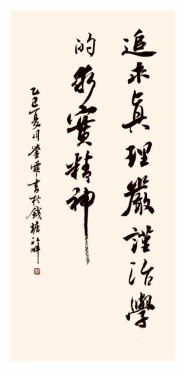 追求真理嚴謹治學
的求實精神
乙巳夏月 書於錢塘